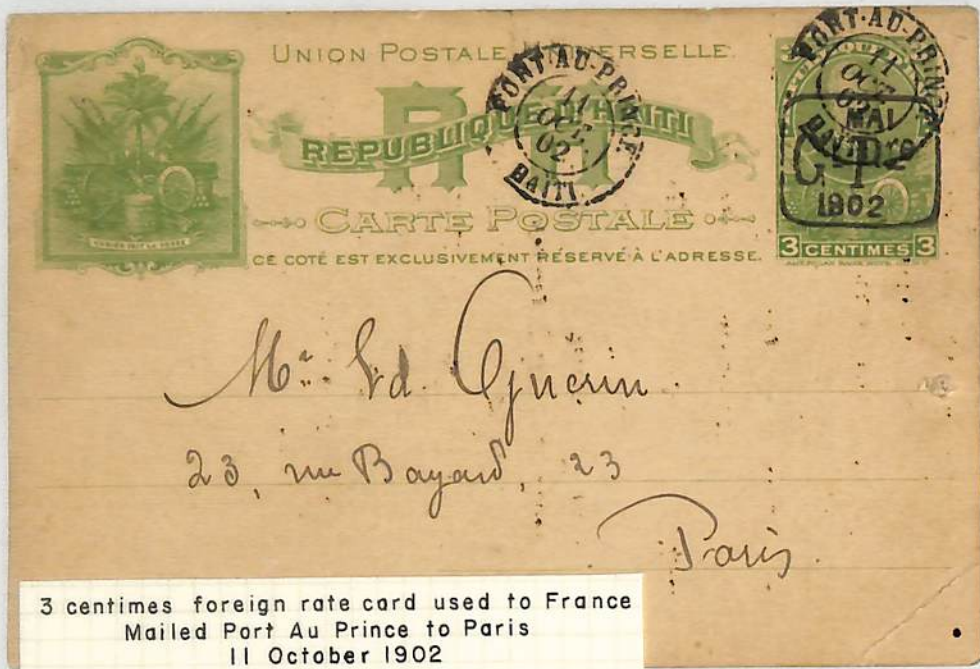 UNION POSTALE UNIVERSELLE.
REPUBLIQUE D'HAITI
RH
CARTE POSTALE
CE COTÉ EST EXCLUSIVEMENT RÉSERVÉ À L'ADRESSE.
PORT-AU-PRINCE
11
OCT
02
HAITI
PORT-AU-PRINCE
11
OCT
02
HAITI
MAI
G P
1902
3 CENTIMES 3
Mr. Ed. Guerin
23, rue Bayard, 23
Paris.
3 centimes foreign rate card used to France
Mailed Port Au Prince to Paris
11 October 1902